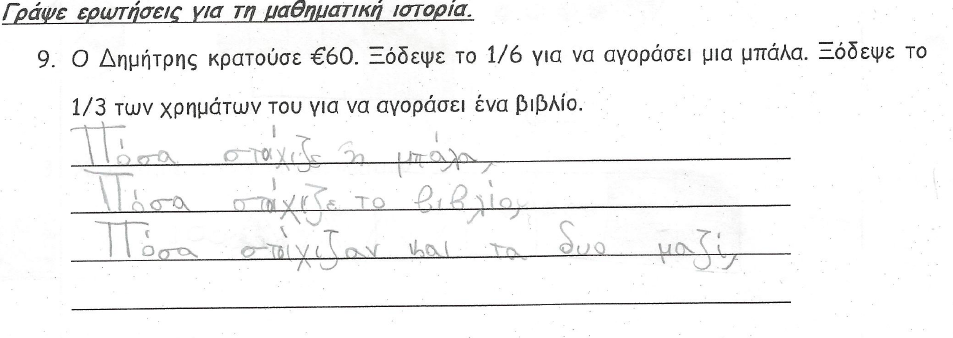 Γράψε ερωτήσεις για τη μαθηματική ιστορία.
9. Ο Δημήτρης κρατούσε €60. Ξόδεψε το 1/6 για να αγοράσει μια μπάλα. Ξόδεψε το
1/3 των χρημάτων του για να αγοράσει ένα βιβλίο.
Πόσα στάχιζε η μπάλα,
Πόσα στάχιζε το βιβλίο,
Πόσα στοίχιζαν και τα δυο μαζί,